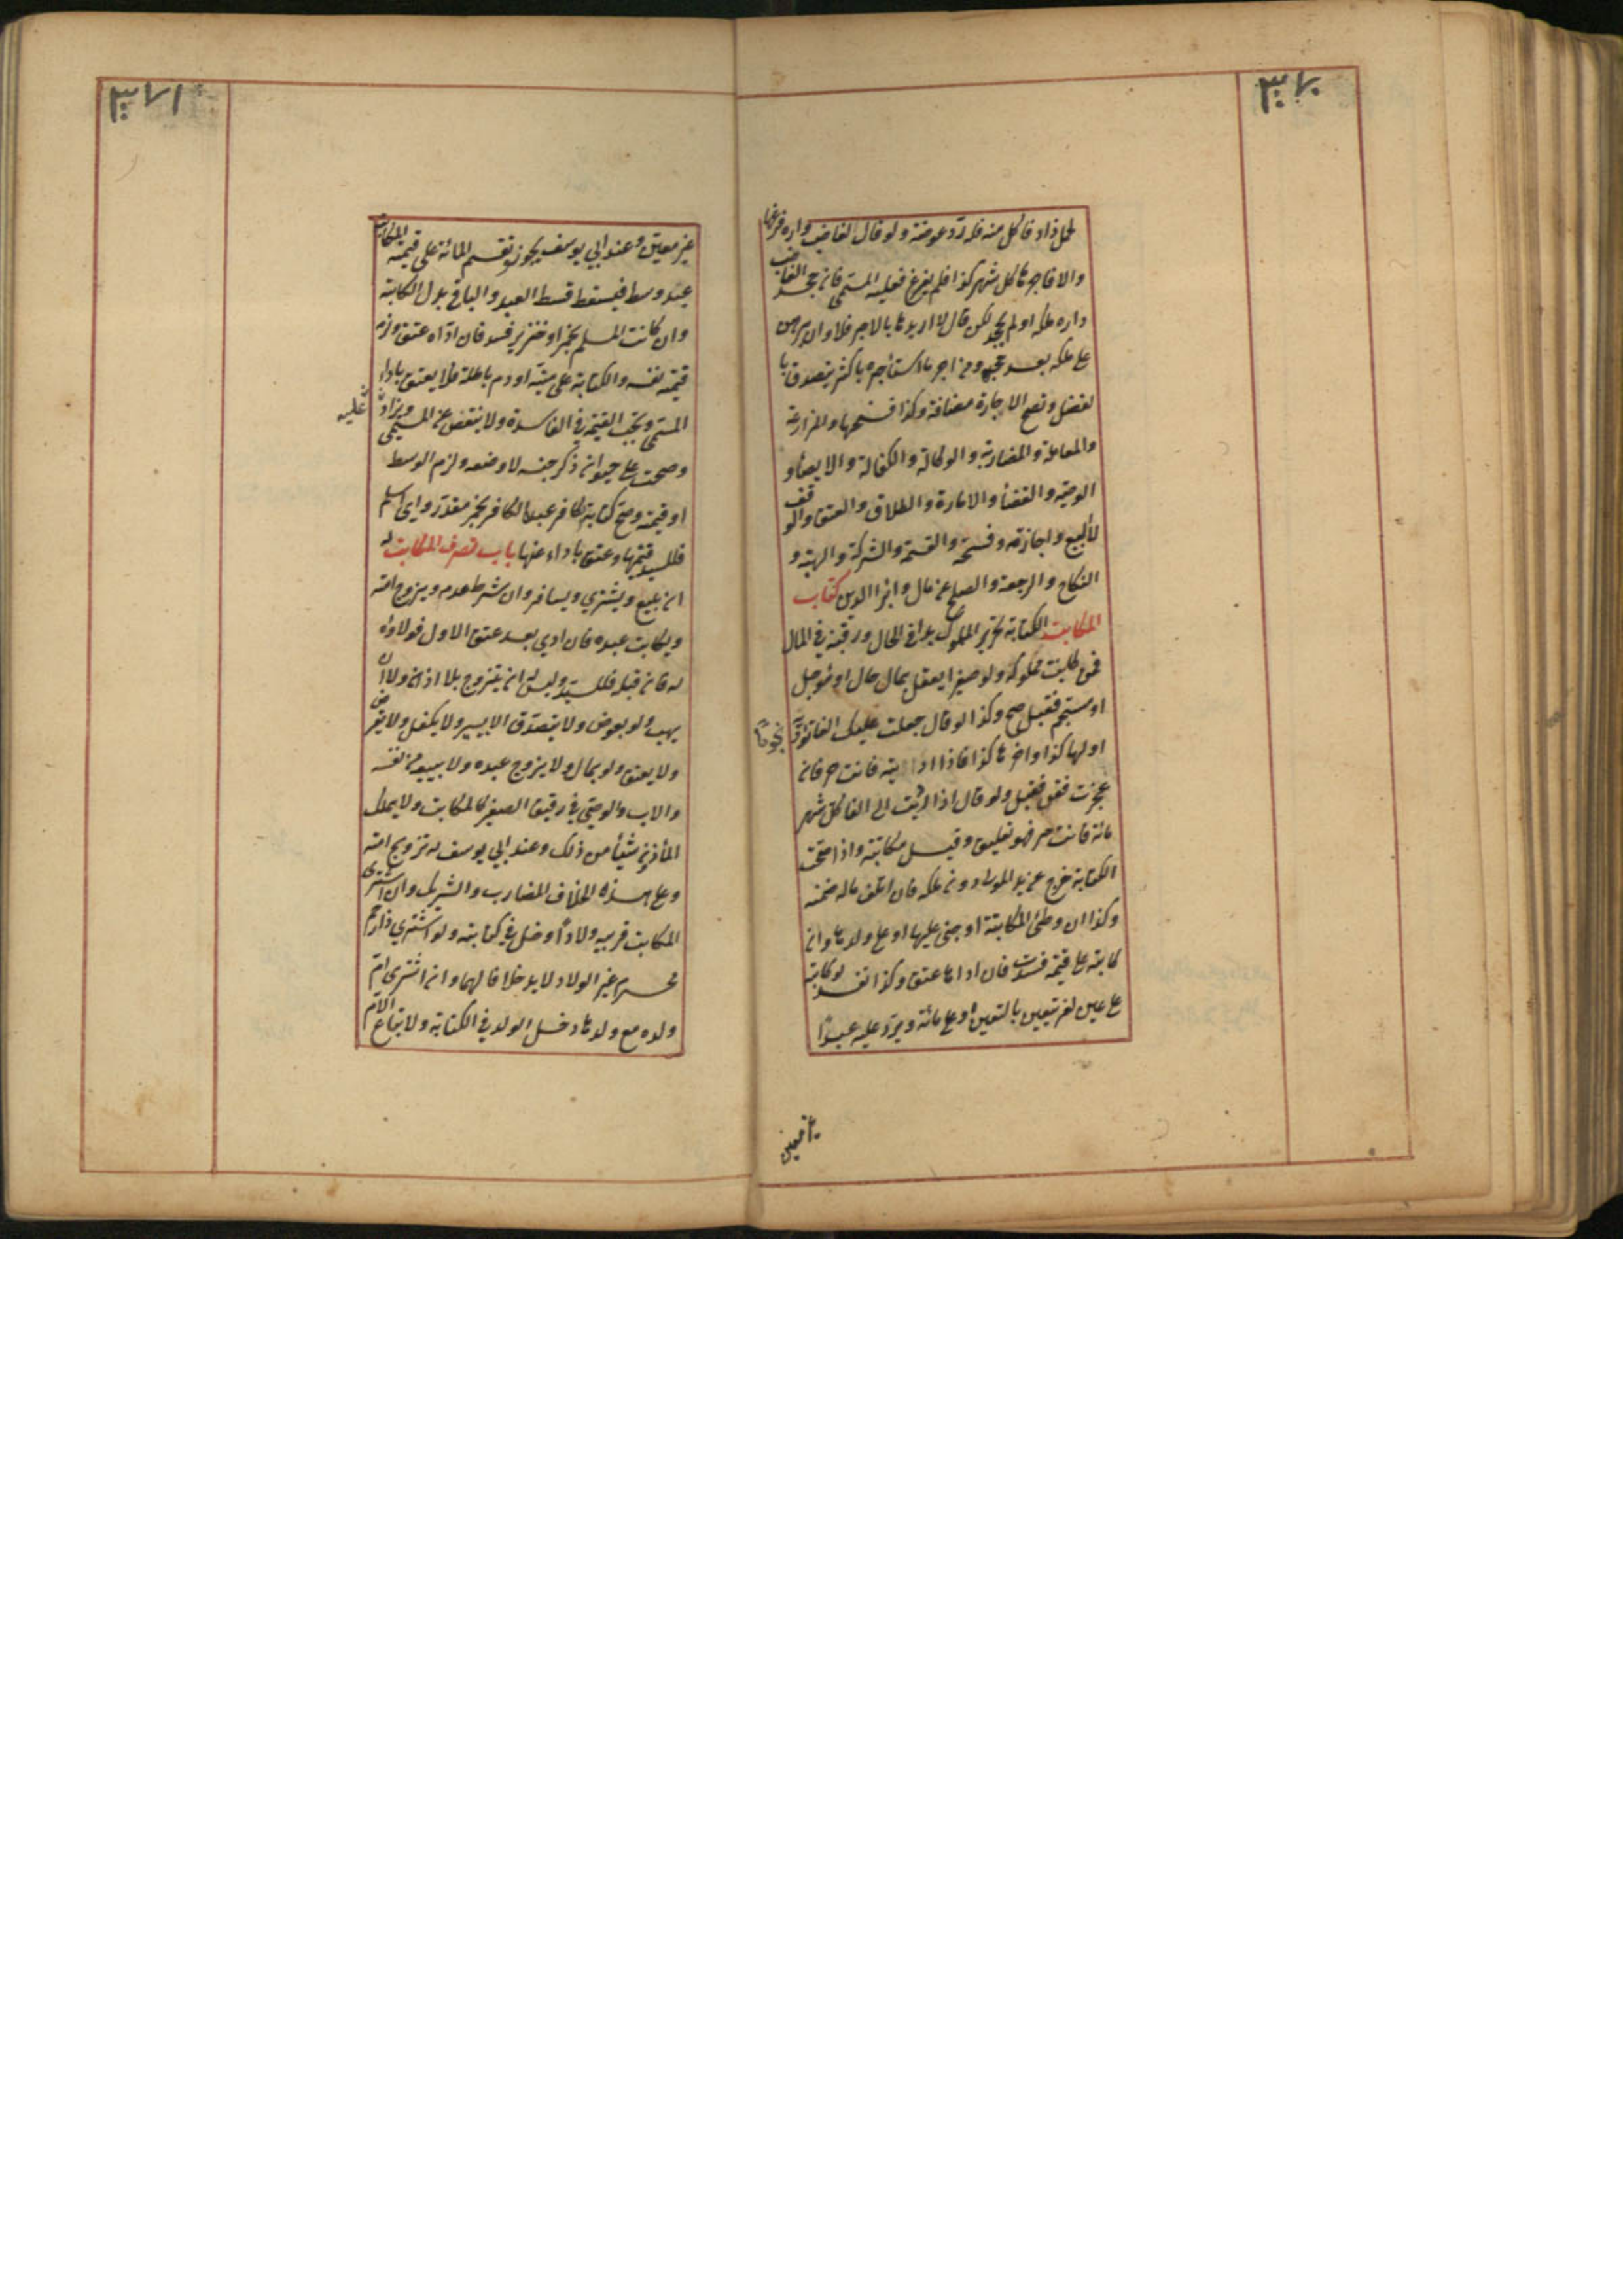 ٣٧٠
لحمل زاد فاكل منه فله رد عوضه ولو قال لغاصب داره فرغها
والا فاجرتها كل شهر كذا فلم يفرغ فعليه المسمى فان جحد الغاصب
داره ملكه او لم يجحد لكن قال لا اريدها بالاجر فلا وان برهن
على ملكه بعد جحوده ومن اجر ما استأجره باكثر يتصدق با
لفضل وتصح الاجارة مضافة وكذا فسخها والمزارعة
والمعاملة والمضاربة والوكالة والكفالة والايصاء و
الوصية والقضاء والامارة والطلاق والعتق والوقف
لا البيع واجازته وفسخه والقسمة والشركة والهبة و
النكاح والرجعة والصلح عن مال وابراء الدين كتاب
المكاتب الكتابة تحرير المملوك يدا في الحال ورقبة في المال
فمن كاتب مملوكه ولو صغيرا يعقل بمال حال او مؤجل
او منجم فقبل صح وكذا لو قال جعلت عليك الفا تؤديه نجوما
اولها كذا واخرها كذا فاذا اديته فانت حر فان
عجزت فقن فقبل ولو قال اذا اديت الي الفا كل شهر
مائة فانت حر فهو تعليق وقيل مكاتبة واذا صحت
الكتابة خرج عن يد المولى دون ملكه فان اتلف ماله ضمنه
وكذا ان وطئ المكاتبة او جنى عليها او على ولدها وان
كاتبه على قيمته فسدت فان اداها عتق وكذا تفسد لو كاتبه
على عين لغيره تتعين بالتعيين او على مائة ويرد عليه عبدا
غير معين
٣٧١
غير معين وعند ابي يوسف يجوز وتقسم المائة على قيمة المكاتب
وعبد وسط فيسقط قسط العبد والباقي بدل الكتابة
وان كاتب المسلم بخمر او خنزير فسد فان اداه عتق ولزمه
قيمة نفسه والكتابة على ميتة او دم باطلة فلا يعتق باداء
المسمى وتجب القيمة في الفاسدة ولا ينقص عن المسمى ويزاد عليه
وصحت على حيوان ذكر جنسه لا وصفه ولزم الوسط
او قيمته وصح كتابة كافر عبده الكافر بخمر مقدر واي اسلم
فللسيد قيمتها وعتق باداء عنها باب تصرف المكاتب له
ان يبيع ويشتري ويسافر وان شرط عدمه ويزوج امته
ويكاتب عبده فان ادى بعد عتق الاول فولاؤه
له فان قبله فللسيد وليس له ان يتزوج بلا اذن ولا ان
يهب ولو بعوض ولا يتصدق الا بيسير ولا يكفل ولا يقرض
ولا يعتق ولو بمال ولا يزوج عبده ولا يبيعه من نفسه
والاب والوصي في رقيق الصغير كالمكاتب ولا يملك
المأذون شيأ من ذلك وعند ابي يوسف له تزويج امته
وعلى هذا الخلاف المضارب والشريك وان اشترى
المكاتب قريبه ولادا دخل في كتابته ولو اشترى ذا رحم
محرم غير الولاد لا يدخل خلافا لهما وان اشترى ام
ولده مع ولدها دخل الولد في الكتابة ولا تباع الام